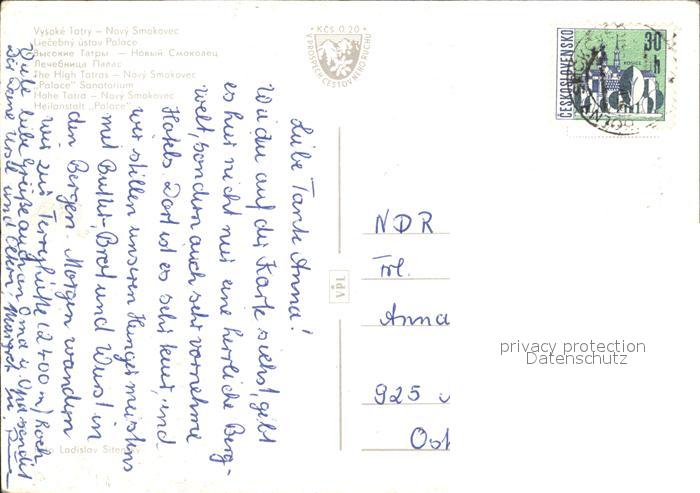 Vysoké Tatry — Nový Smokovec
Liečebný ústav Palace
Высокие Татры — Новый Смоковец
Лечебница Палас
The High Tatras — Nový Smokovec
„Palace" Sanatorium
Hohe Tatra — Nový Smokovec
Heilanstalt „Palace"
Kčs 0,20
V PROSPĚCH CESTOVNÍHO RUCHU
ČESKOSLOVENSKO
30 h
Liebe Tante Anna!
Wie du auf der Karte siehst, gibt
es hier nicht nur eine herrliche Berg-
welt, sondern auch sehr vornehme
Hotels. Dort ist es sehr teuer, und
wir stillen unseren Hunger meistens
mit Butter, Brot und Wurst in
den Bergen. Morgen wandern
wir zur Terryhütte (2400 m) hoch
Viele liebe Grüße auch an Oma u. Opa sendet
Dir Deine und Eltern,
VPL
NDR
Frl.
Anna
925
Ost
Ladislav
privacy protection
Datenschutz